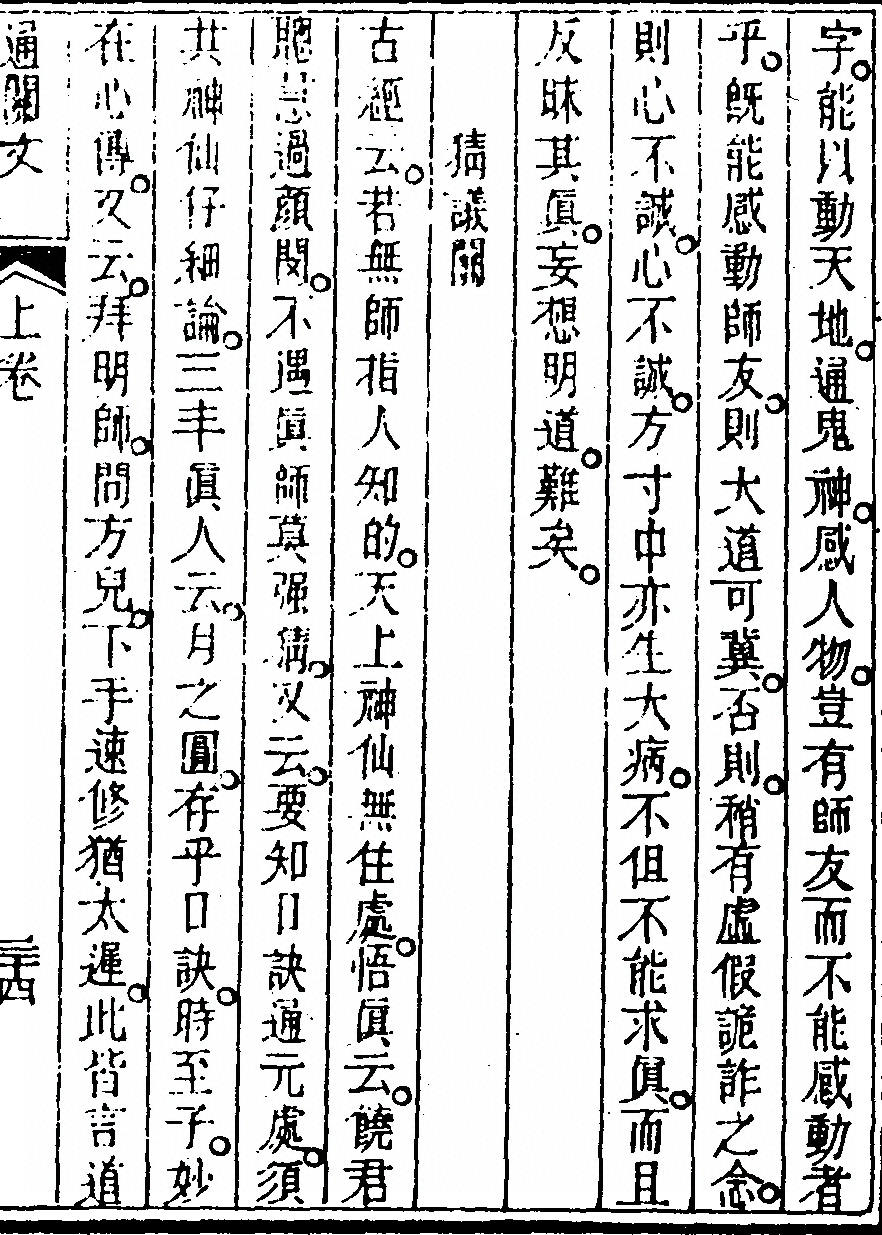 字。能以動天地。通鬼神。感人物。豈有師友而不能感動者
乎。旣能感動師友。則大道可冀。否則。稍有虛假詭詐之念。
則心不誠。心不誠。方寸中亦生大病。不但不能求眞。而且
反昧其眞。妄想明道。難矣。
猜議關
古經云。若無師指人知的。天上神仙無住處。悟眞云。饒君
聰慧過顔閔。不遇眞師莫强猜。又云。要知口訣通元處。須
共神仙仔細論。三丰眞人云。月之圓。存乎口訣。時至子。妙
在心傳。又云。拜明師。問方兒。下手速修猶太遲。此皆言道
通關文 上卷 三十四